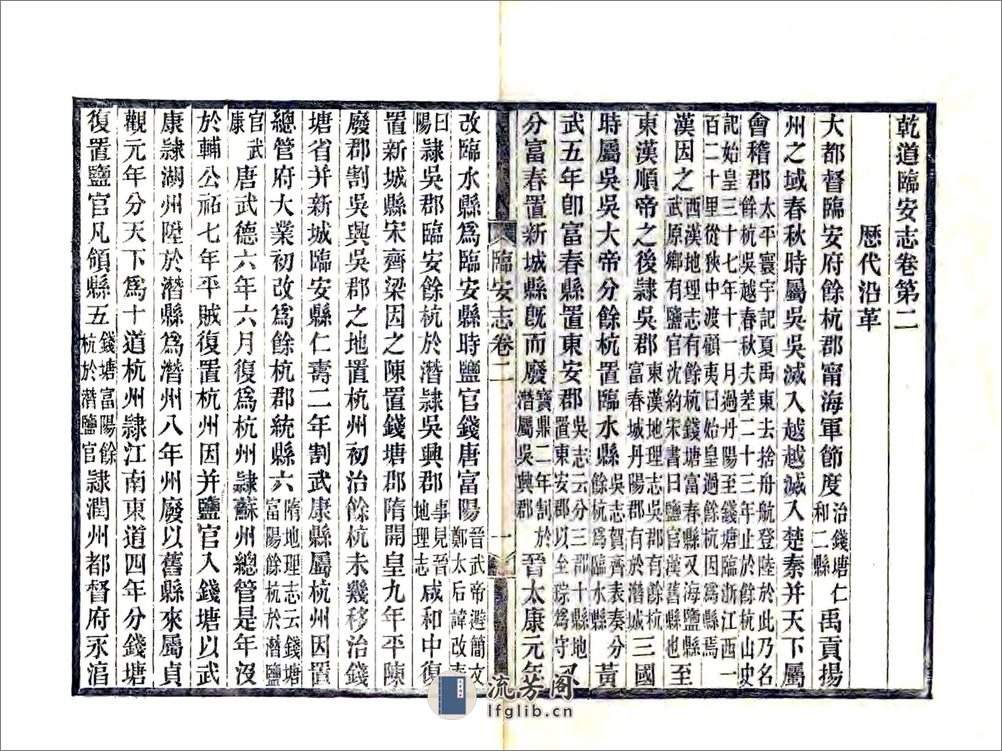 乾道臨安志卷第二
歷代沿革
大都督臨安府餘杭郡甯海軍節度治錢塘仁和二縣禹貢揚
州之域春秋時屬吳吳滅入越越滅入楚秦并天下屬
會稽郡太平寰宇記夏禹東去捨舟航登陸於此乃名餘杭吳越春秋夫差二十三年止於餘杭山史
記始皇三十七年十一月過丹陽至錢塘臨浙江西一百二十里從狹中渡顧夷曰始皇過餘杭因爲縣焉
漢因之西漢地理志有餘杭錢塘富春縣又海鹽縣武原鄉有鹽官沈約宋書曰鹽官漢舊縣也至
東漢順帝之後隸吳郡東漢地理志吳郡有餘杭富春城丹陽郡有於潛城三國
時屬吳吳大帝分餘杭置臨水縣吳志賀齊表奏分餘杭爲臨水縣黃
武五年卽富春縣置東安郡吳志云分三郡十縣地置東安以全琮爲守又
分富春置新城縣旣而廢寶鼎二年割於潛屬吳興郡晉太康元年
臨安志卷二
一
改臨水縣爲臨安縣時鹽官錢唐富陽晉武帝避簡文鄭太后諱改
曰陽隸吳郡臨安餘杭於潛隸吳興郡事見晉地理志咸和中復
置新城縣宋齊梁因之陳置錢塘郡隋開皇九年平陳
廢郡割吳興吳郡之地置杭州初治餘杭未幾移治錢
塘省并新城臨安縣仁壽二年割武康縣屬杭州因置
總管府大業初改爲餘杭郡統縣六隋地理志云錢塘富陽餘杭於潛鹽
官武康唐武德六年六月復爲杭州隸蘇州總管是年沒
於輔公祏七年平賊復置杭州因并鹽官入錢塘以武
康隸湖州陞於潛縣爲潛州八年州廢以舊縣來屬貞
觀元年分天下爲十道杭州隸江南東道四年分錢塘
復置鹽官凡領縣五錢塘富陽餘杭於潛鹽官隸潤州都督府永湻
流芳阁
lfglib.cn